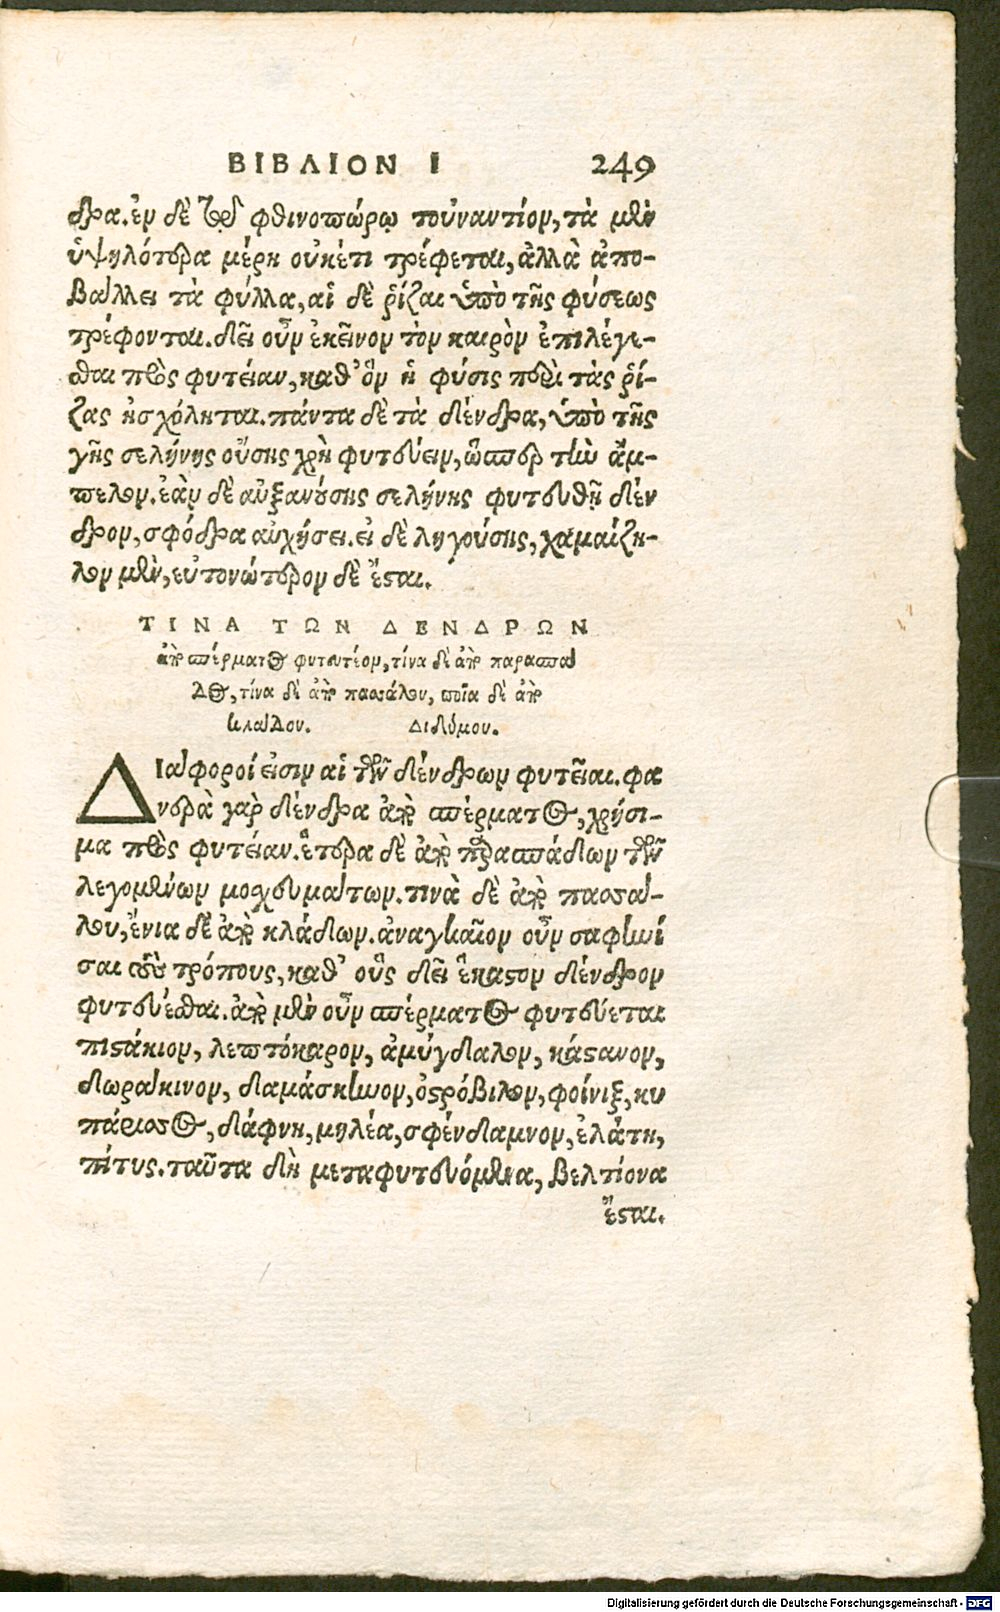 ΒΙΒΛΙΟΝ Ι 249
δρα. ἐν δὲ τῷ φθινοπώρῳ τοὐναντίον, τὰ μὲν
ὑψηλότερα μέρη οὐκέτι τρέφεται, ἀλλὰ ἀπο-
βάλλει τὰ φύλλα, αἱ δὲ ῥίζαι ὑπὸ τῆς φύσεως
τρέφονται. δεῖ οὖν ἐκεῖνον τὸν καιρὸν ἐπιλέγε-
σθαι πρὸς φυτείαν, καθ' ὃν ἡ φύσις περὶ τὰς ῥί-
ζας ἠσχόληται. πάντα δὲ τὰ δένδρα, ὑπὸ τῆς
γῆς σελήνης οὔσης χρὴ φυτεύειν, ὥσπερ τὴν ἄμ-
πελον. ἐὰν δὲ αὐξανούσης σελήνης φυτευθῇ δέν
δρον, σφόδρα αὐχήσει. εἰ δὲ ληγούσης, χαμαίζη-
λον μὲν, εὐτονώτερον δὲ ἔσται.
ΤΙΝΑ ΤΩΝ ΔΕΝΔΡΩΝ
ἀπὸ σπέρματος φυτευτέον, τίνα δὲ ἀπὸ παρασπά
δος, τίνα δὲ ἀπὸ πασσάλου, ποῖα δὲ ἀπὸ
κλάδου. Διδύμου.
ΔΙάφοροί εἰσιν αἱ τῶν δένδρων φυτεῖαι. φα
νερὰ γὰρ δένδρα ἀπὸ σπέρματος, χρήσι-
μα πρὸς φυτείαν. ἕτερα δὲ ἀπὸ παρασπάδων τῶν
λεγομένων μοχευμάτων. τινὰ δὲ ἀπὸ πασσά-
λου, ἔνια δὲ ἀπὸ κλάδων. ἀναγκαῖον οὖν σαφηνί
σαι τοὺς τρόπους, καθ' οὓς δεῖ ἕκαστον δένδρον
φυτεύεσθαι. ἀπὸ μὲν οὖν σπέρματος φυτεύεται
πιστάκιον, λεπτόκαρον, ἀμύγδαλον, κάστανον,
δωράκινον, δαμάσκηνον, ὀστρόβιλον, φοίνιξ, κυ
πάρισσος, δάφνη, μηλέα, σφένδαμνον, ἐλάτη,
πίτυς. ταῦτα δὴ μεταφυτευόμενα, βελτίονα
ἔσται.
Digitalisierung gefördert durch die Deutsche Forschungsgemeinschaft - DFG